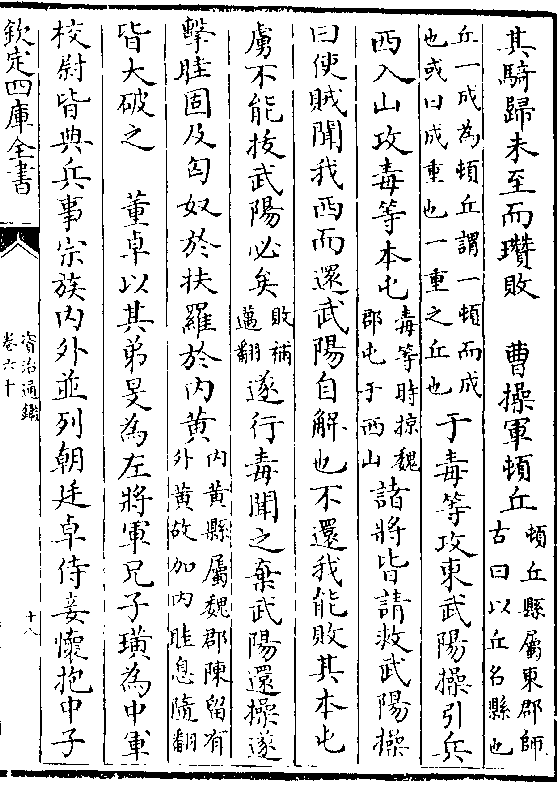 其騎歸未至而瓚敗　曹操軍頓丘頓丘縣屬東郡師古曰以丘名縣也
丘一成為頓丘謂一頓而成也或曰成重也一重之丘也于毒等攻東武陽操引兵
西入山攻毒等本屯毒等時掠魏郡屯于西山諸將皆請救武陽操
曰使賊聞我西而還武陽自解也不還我能敗其本屯
虜不能拔武陽必矣敗補邁翻遂行毒聞之棄武陽還操遂
擊眭固及匈奴於扶羅於内黄内黄縣屬魏郡陳留有外黄故加内眭息隨翻
皆大破之　董卓以其弟旻為左將軍兄子璜為中軍
校尉皆典兵事宗族内外並列朝廷卓侍妾懷抱中子
欽定四庫全書
資治通鑑
卷六十
十八